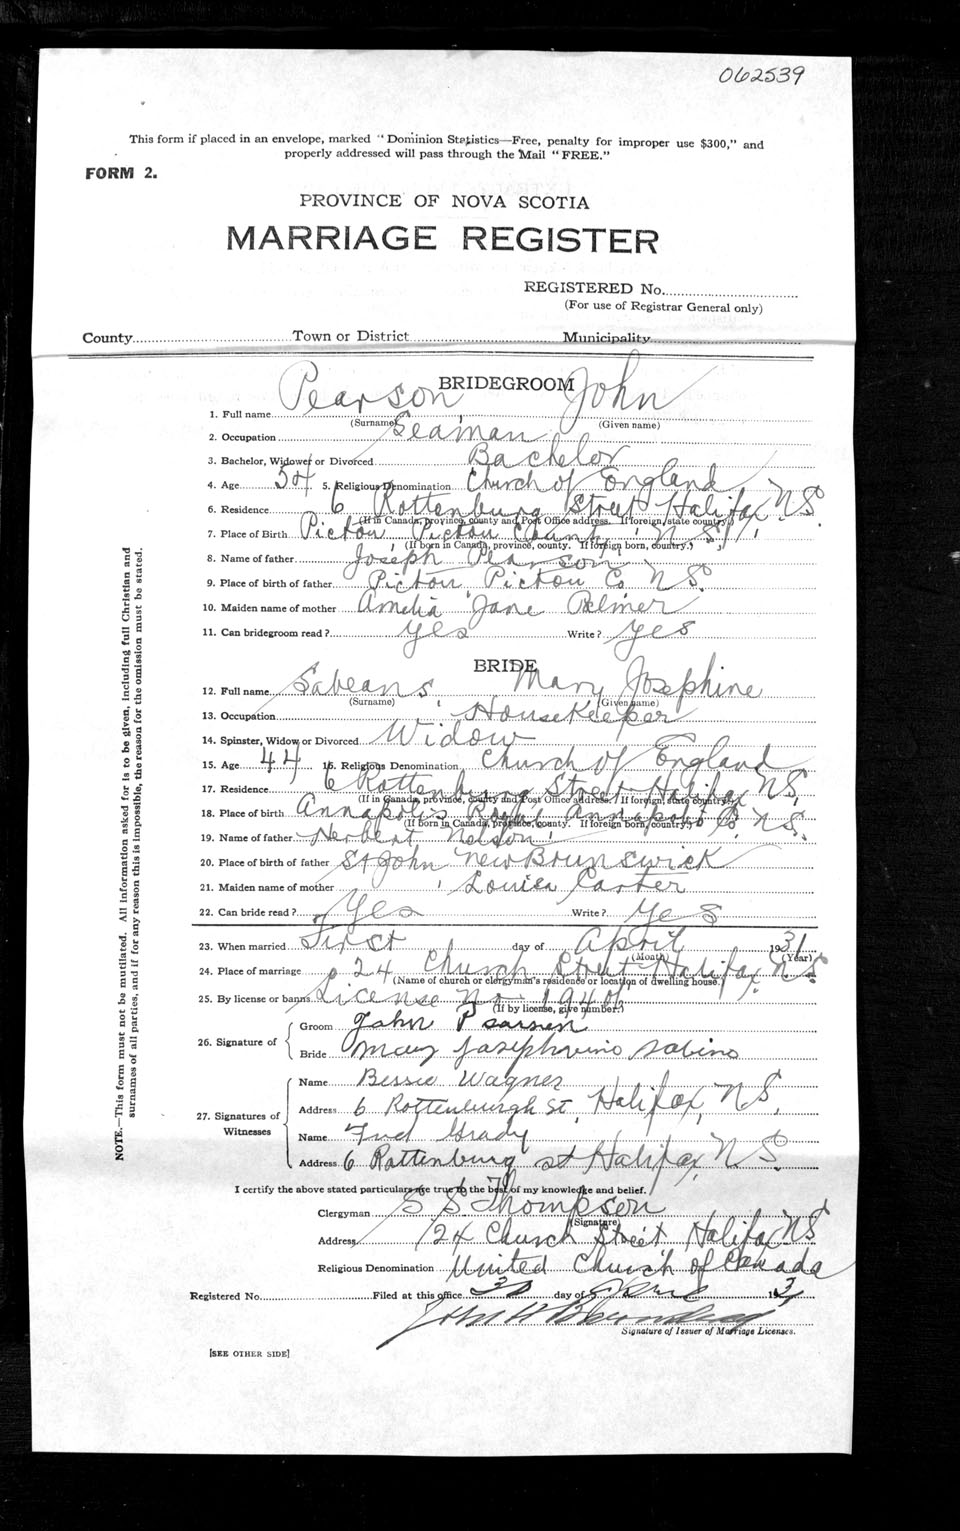 062539
This form if placed in an envelope, marked "Dominion Statistics—Free, penalty for improper use $300," and
properly addressed will pass through the Mail "FREE."
FORM 2.
PROVINCE OF NOVA SCOTIA
MARRIAGE REGISTER
REGISTERED No.
(For use of Registrar General only)
County Town or District Municipality
BRIDEGROOM
1. Full name Pearson John
(Surname) (Given name)
2. Occupation Seaman
3. Bachelor, Widower or Divorced Bachelor
4. Age 54 5. Religious Denomination Church of England
6. Residence 6 Rottenburg Street Halifax N.S.
(If in Canada, province, county and Post Office address. If foreign, state country.)
7. Place of Birth Pictou Pictou County N.S.
(If born in Canada, province, county. If foreign born, country.)
8. Name of father Joseph Pearson
9. Place of birth of father Pictou, Pictou Co. N.S.
10. Maiden name of mother Amelia Jane Palmer
11. Can bridegroom read? yes Write? yes
BRIDE
12. Full name Sabeans Mary Josephine
(Surname) (Given name)
13. Occupation Housekeeper
14. Spinster, Widow or Divorced Widow
15. Age 44 16. Religious Denomination Church of England
17. Residence 6 Rottenburg Street Halifax N.S.
(If in Canada, province, county and Post Office address. If foreign, state country.)
18. Place of birth Annapolis Royal Annapolis Co. N.S.
(If born in Canada, province, county. If foreign born, country.)
19. Name of father Herbert Nelson
20. Place of birth of father St John New Brunswick
21. Maiden name of mother Louisa Carter
22. Can bride read? Yes Write? yes
23. When married First day of April 1931
(Month) (Year)
24. Place of marriage 24 Church Street Halifax N.S.
(Name of church or clergyman's residence or location of dwelling house.)
25. By license or banns License No. 19401
(If by license, give number.)
26. Signature of
Groom John Pearsen
Bride Mary Josephvino Sabino
27. Signatures of Witnesses
Name Bessie Wagner
Address 6 Rottenburgh St, Halifax, N.S.
Name Fred Grady
Address 6 Rattenburg st Halifax, N.S.
I certify the above stated particulars are true to the best of my knowledge and belief.
Clergyman S S Thompson
(Signature)
Address 124 Church Street Halifax N.S
Religious Denomination United Church of Canada
Registered No. Filed at this office day of 193
Signature of Issuer of Marriage Licenses.
[SEE OTHER SIDE]
NOTE.—This form must not be mutilated. All information asked for is to be given, including full Christian and
surnames of all parties, and if for any reason this is impossible, the reason for the omission must be stated.